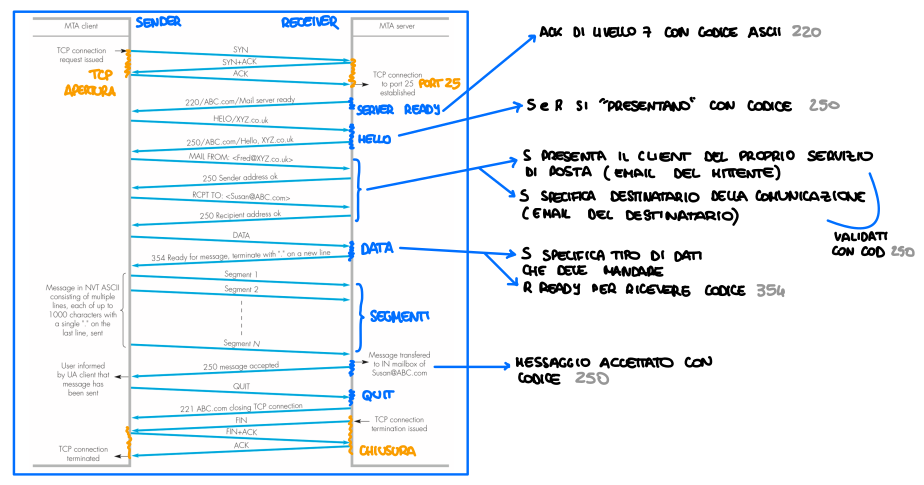 SENDER
RECEIVER
MTA client
MTA server
TCP connection
request issued
SYN
SYN+ACK
ACK
TCP
APERTURA
TCP connection
to port 25
established
PORT 25
220/ABC.com/Mail server ready
SERVER READY
HELO/XYZ.co.uk
250/ABC.com/Hello, XYZ.co.uk
HELLO
MAIL FROM: <Fred@XYZ.co.uk>
250 Sender address ok
RCPT TO: <Susan@ABC.com>
250 Recipient address ok
DATA
DATA
354 Ready for message, terminate with "." on a new line
Segment 1
Segment 2
Segment N
SEGMENTI
Message in NVT ASCII
consisting of multiple
lines, each of up to
1000 characters with
a single "." on the
last line, sent
Message transfered
to IN mailbox of
Susan@ABC.com
250 message accepted
User informed
by UA client that
message has
been sent
QUIT
QUIT
221 ABC.com closing TCP connection
FIN
TCP connection
termination issued
FIN+ACK
ACK
CHIUSURA
TCP connection
terminated
ACK DI LIVELLO 7 CON CODICE ASCII 220
S e R SI "PRESENTANO" CON CODICE 250
S PRESENTA IL CLIENT DEL PROPRIO SERVIZIO
DI POSTA (EMAIL DEL MITTENTE)
S SPECIFICA DESTINATARIO DELLA COMUNICAZIONE
(EMAIL DEL DESTINATARIO)
VALIDATI
CON COD 250
S SPECIFICA TIPO DI DATI
CHE DEVE MANDARE
R READY PER RICEVERE CODICE 354
MESSAGGIO ACCETTATO CON
CODICE 250